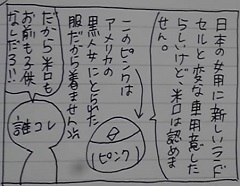 日本の女用に新しいランド
セルと変な車用意した
らしいけど、米口は認めま
せん。
このピンクは
アメリカの
黒人女にとられた
服だから着ません
(ピンク)
だから米口も
お前も子供
なんだろ!!
誰コレ